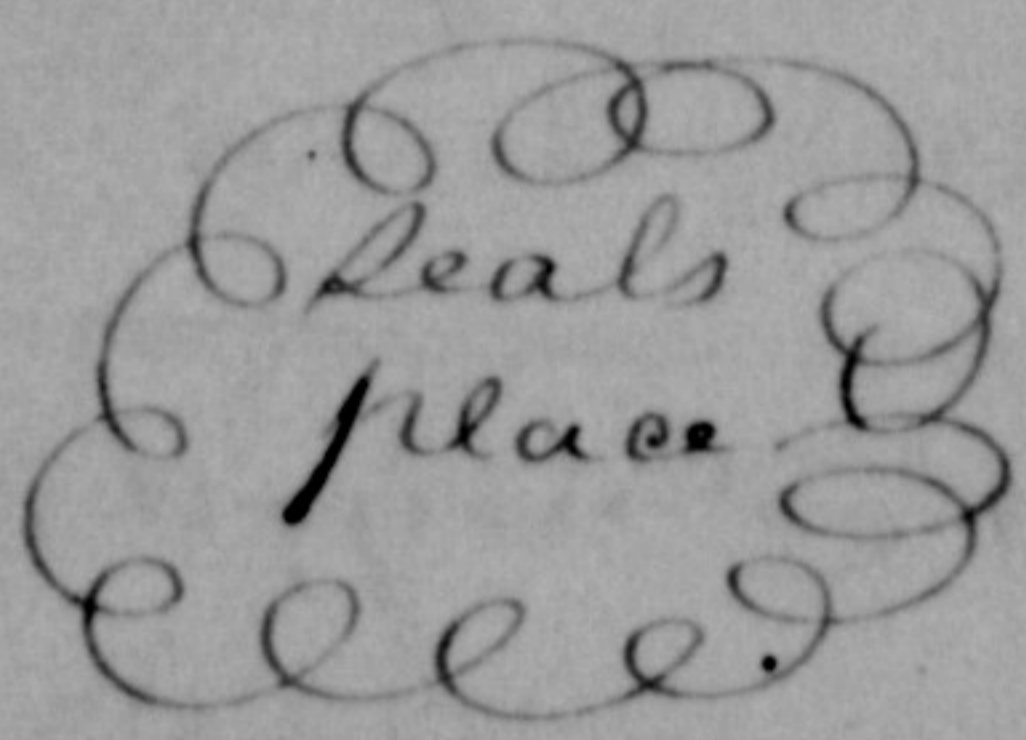 Seals
place